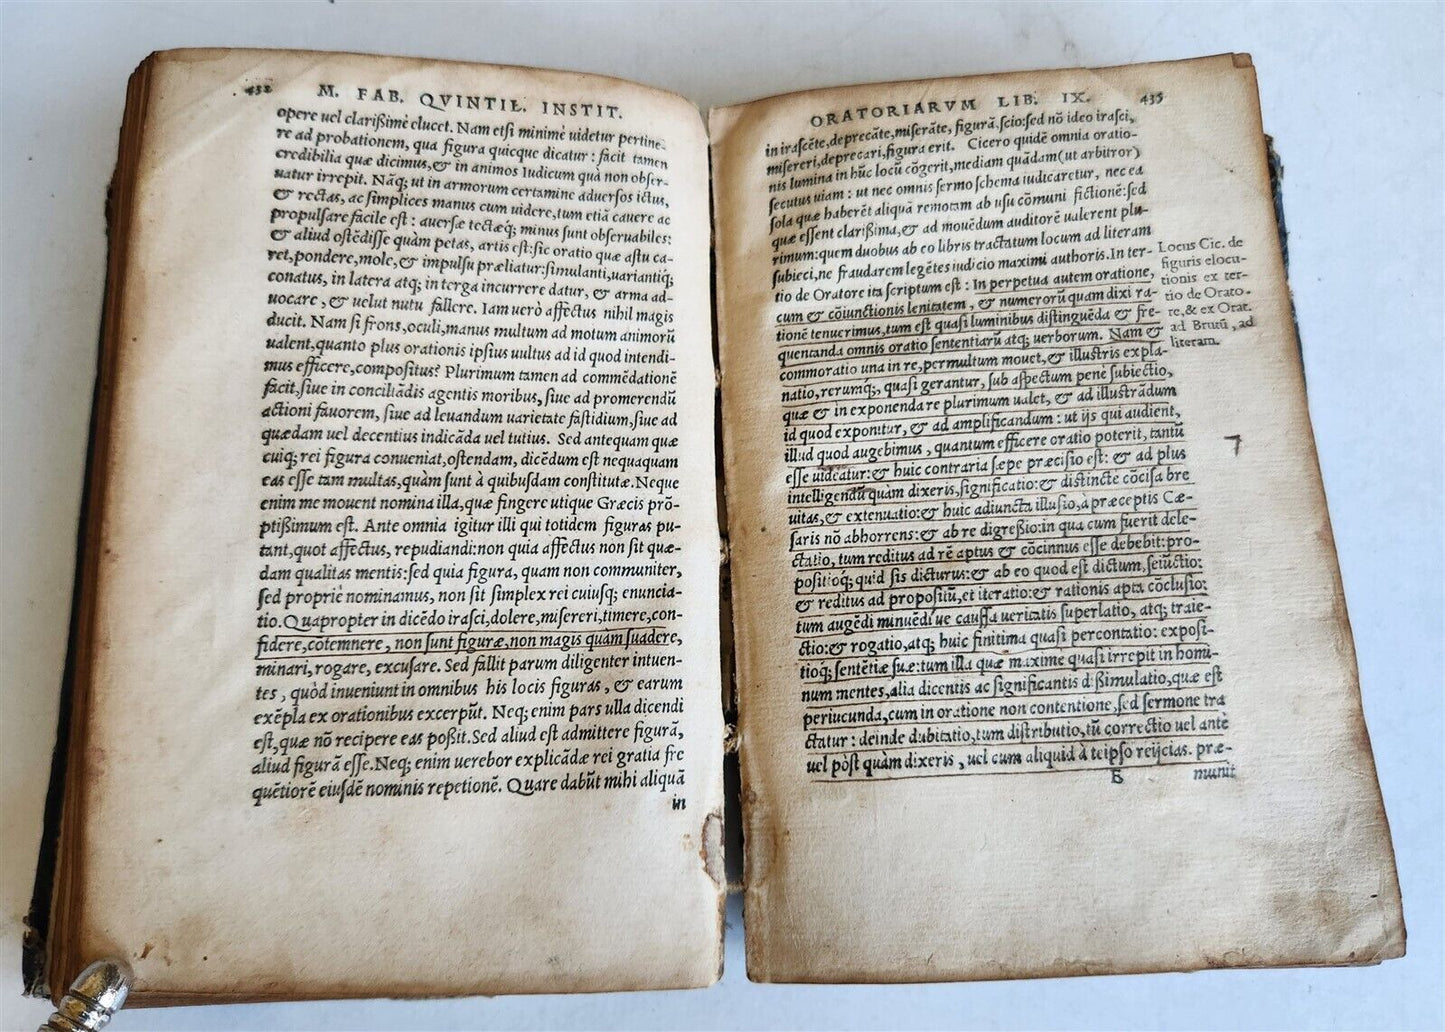 432
M. FAB. QVINTIL. INSTIT.
opere uel clarißimè elucet. Nam etsi minimè uidetur pertine-
re ad probationem, qua figura quicque dicatur: facit tamen
credibilia quæ dicimus,& in animos Iudicum quà non obser-
uatur irrepit. Nāq; ut in armorum certamine aduersos ictus,
& rectas, ac simplices manus cum uidere,tum etiā cauere ac
propulsare facile est: auersæ tectæq; minus sunt obseruabiles:
& aliud ostēdisse quàm petas, artis est:sic oratio quæ astu ca-
ret,pondere,mole,& impulsu præliatur:simulanti,uariantiq;
conatus, in latera atq; in terga incurrere datur, & arma ad-
uocare, & uelut nutu fallere. Iam uerò affectus nihil magis
ducit. Nam si frons,oculi,manus multum ad motum animorū
ualent,quanto plus orationis ipsius uultus ad id quod intendi-
mus efficere,compositus? Plurimum tamen ad commēdationē
facit,siue in conciliādis agentis moribus, siue ad promerendū
actioni fauorem, siue ad leuandum uarietate fastidium,siue ad
quædam uel decentius indicāda uel tutius. Sed antequam quæ
cuiq; rei figura conueniat,ostendam, dicēdum est nequaquam
eas esse tam multas,quàm sunt à quibusdam constitutæ.Neque
enim me mouent nomina illa,quæ fingere utique Græcis prō-
ptißimum est. Ante omnia igitur illi qui totidem figuras pu-
tant,quot affectus, repudiandi:non quia affectus non sit quæ-
dam qualitas mentis:sed quia figura, quam non communiter,
sed propriè nominamus, non sit simplex rei cuiusq; enuncia-
tio.Quapropter in dicēdo irasci,dolere,misereri,timere,con-
fidere,cōtemnere, non sunt figuræ,non magis quàm suadere,
minari,rogare, excusare. Sed fallit parum diligenter intuen-
tes, quòd inueniunt in omnibus his locis figuras, & earum
exēpla ex orationibus excerpūt. Neq; enim pars ulla dicendi
est,quæ nō recipere eas poßit.Sed aliud est admittere figurā,
aliud figurā esse.Neq; enim uerebor explicādæ rei gratia fre
quētiorē eiusdē nominis repetionē. Quare dabūt mihi aliquā
in
ORATORIARVM LIB. IX.
435
in irascēte,deprecāte,miserāte, figurā,scio:sed nō ideo irasci,
misereri,deprecari,figura erit. Cicero quidē omnia oratio-
nis lumina in hūc locū cōgerit,mediam quādam(ut arbitror)
secutus uiam: ut nec omnis sermo schema iudicaretur, nec ea
sola quæ haberēt aliquā remotam ab usu cōmuni fictionē:sed
quæ essent clarißima,& ad mouēdum auditorē ualerent plu-
rimum:quem duobus ab eo libris tractatum locum ad literam
subieci,ne fraudarem legētes iudicio maximi authoris.In ter-
tio de Oratore ita scriptum est: In perpetua autem oratione,
cum & cōiunctionis lenitatem, & numerorū quam dixi ra-
tionē tenuerimus,tum est quasi luminibus distinguēda & fre-
quentanda omnis oratio sententiarū atq; uerborum. Nam &
commoratio una in re,permultum mouet,& illustris expla-
natio,rerumq;, quasi gerantur, sub aspectum penè subiectio,
quæ & in exponenda re plurimum ualet, & ad illustrādum
id quod exponitur, & ad amplificandum: ut ijs qui audient,
illud quod augebimus, quantum efficere oratio poterit, tantū
esse uideatur:& huic contraria sæpe præcisio est: & ad plus
intelligendū quàm dixeris,significatio:& distinctè cōcisa bre
uitas,& extenuatio:& huic adiuncta illusio,à præceptis Cæ-
saris nō abhorrens:& ab re digreßio:in qua cum fuerit dele-
ctatio, tum reditus ad rē aptus & cōcinnus esse debebit:pro-
positioq; quid sis dicturus:& ab eo quod est dictum,seiūctio:
& reditus ad propositū,et iteratio:& rationis apta cōclusio:
tum augēdi minuēdi ue caussa ueritatis superlatio, atq; traie-
ctio:& rogatio,atq; huic finitima quasi percontatio: exposi-
tioq; sentētiæ suæ:tum illa quæ maximè quasi irrepit in homi-
num mentes,alia dicentis ac significantis dißimulatio,quæ est
periucunda,cum in oratione non contentione,sed sermone tra
ctatur: deinde dubitatio,tum distributio,tū correctio uel antè
uel pòst quàm dixeris, uel cum aliquid à teipso reijcias. præ-
munit
Locus Cic. de
figuris elocu-
tionis ex ter-
tio de Orato-
re,& ex Orat.
ad Brutū, ad
literam.